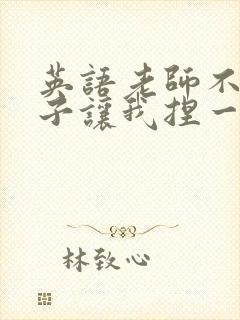 英語老師不
子讓我捏一
林致心